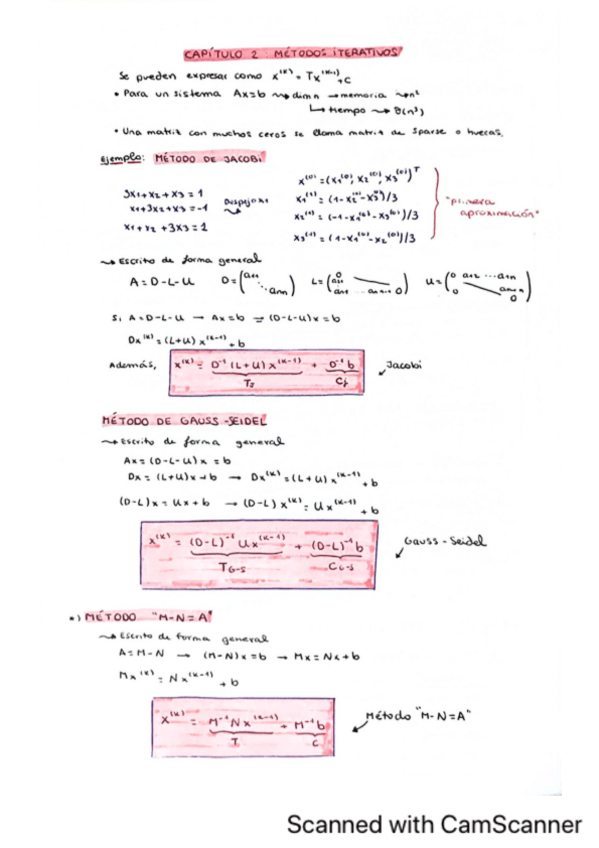 CAPÍTULO 2 MÉTODOS ITERATIVOS
Se pueden expresar como x^(k) = Tx^(k-1) + C
• Para un sistema Ax=b ⇝ dim n → memoria ⇝ n²
↳ tiempo ⇝ θ(n³)
• Una matriz con muchos ceros se llama matriz de sparse o huecas.
Ejemplo: MÉTODO DE JACOBI
x^(0) = (x1^(0), x2^(0), x3^(0))^T
3x1+x2+x3=1
x1+3x2+x3=-1
x1+x2+3x3=1
Despejo xi
x1^(1) = (1-x2^(0)-x3^(0))/3
x2^(1) = (-1-x1^(0)-x3^(0))/3
x3^(1) = (1-x1^(0)-x2^(0))/3
"primera
aproximación"
⇝ Escrito de forma general
A = D-L-U D = (a11 ⋱ ann) L = U =
Si A = D-L-U → Ax=b ⇒ (D-L-U)x=b
Dx^(k) = (L+U)x^(k-1) + b
Además, x^(k) = D^-1(L+U)x^(k-1) + D^-1b Jacobi
TJ CJ
MÉTODO DE GAUSS-SEIDEL
⇝ Escrito de forma general
Ax = (D-L-U)x = b
Dx = (L+U)x+b → Dx^(k) = (L+U)x^(k-1) + b
(D-L)x = Ux+b → (D-L)x^(k) = Ux^(k-1) + b
x^(k) = (D-L)^-1 Ux^(k-1) + (D-L)^-1 b Gauss-Seidel
TG-S CG-S
*) MÉTODO "M-N=A"
⇝ Escrito de forma general
A = M-N → (M-N)x=b → Mx = Nx+b
Mx^(k) = Nx^(k-1) + b
x^(k) = M^-1 Nx^(k-1) + M^-1 b Método "M-N=A"
T C
Scanned with CamScanner